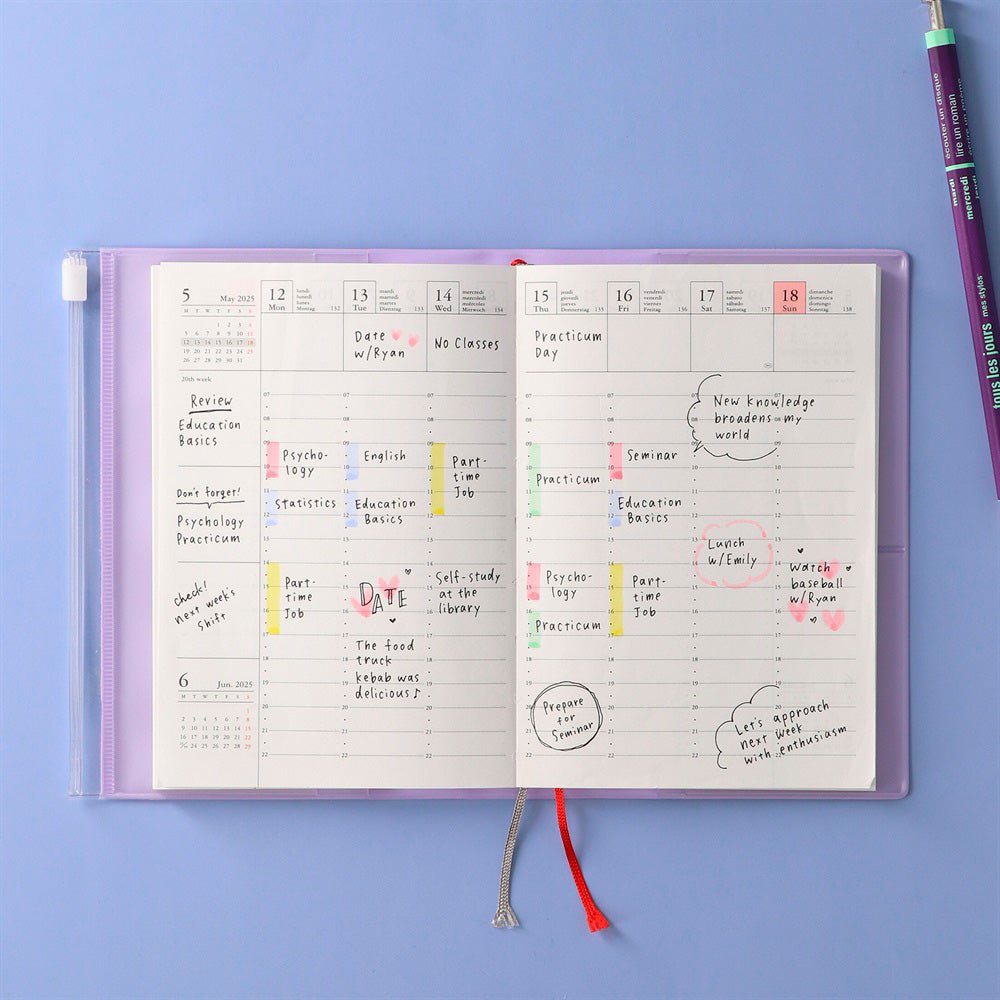 5 May 2025
M T W T F S S
1 2 3 4
5 6 7 8 9 10 11
12 13 14 15 16 17 18
19 20 21 22 23 24 25
26 27 28 29 30 31
20th week
Review
Education
Basics
Don't forget!
Psychology
Practicum
Check!
next week's
Shift
6 Jun. 2025
M T W T F S S
1
2 3 4 5 6 7 8
9 10 11 12 13 14 15
16 17 18 19 20 21 22
24 25 26 27 28 29
12
Mon
lundi
lunedì
lunes
Montag 132
Psycho-
logy
Statistics
Part-
time
Job
13
Tue
mardi
martedì
martes
Dienstag 133
Date
w/Ryan
English
Education
Basics
DATE
The food
truck
kebab was
delicious♪
14
Wed
mercredi
mercoledì
miércoles
Mittwoch 134
No Classes
Part-
time
Job
Self-study
at the
library
15
Thu
jeudi
giovedì
jueves
Donnerstag 135
Practicum
Day
Practicum
Psycho-
logy
Practicum
Prepare
for
Seminar
16
Fri
vendredi
venerdì
viernes
Freitag 136
Seminar
Education
Basics
Part-
time
Job
17
Sat
samedi
sabato
sábado
Samstag 137
New knowledge
broadens my
world
Lunch
w/Emily
18
Sun
dimanche
domenica
domingo
Sonntag 138
Watch
baseball
w/Ryan
Let's approach
next week
with enthusiasm
07
08
09
10
11
12
13
14
15
16
17
18
19
20
21
22
écouter un disque
lire un roman
mardi
mercredi
tous les jours mes stylos